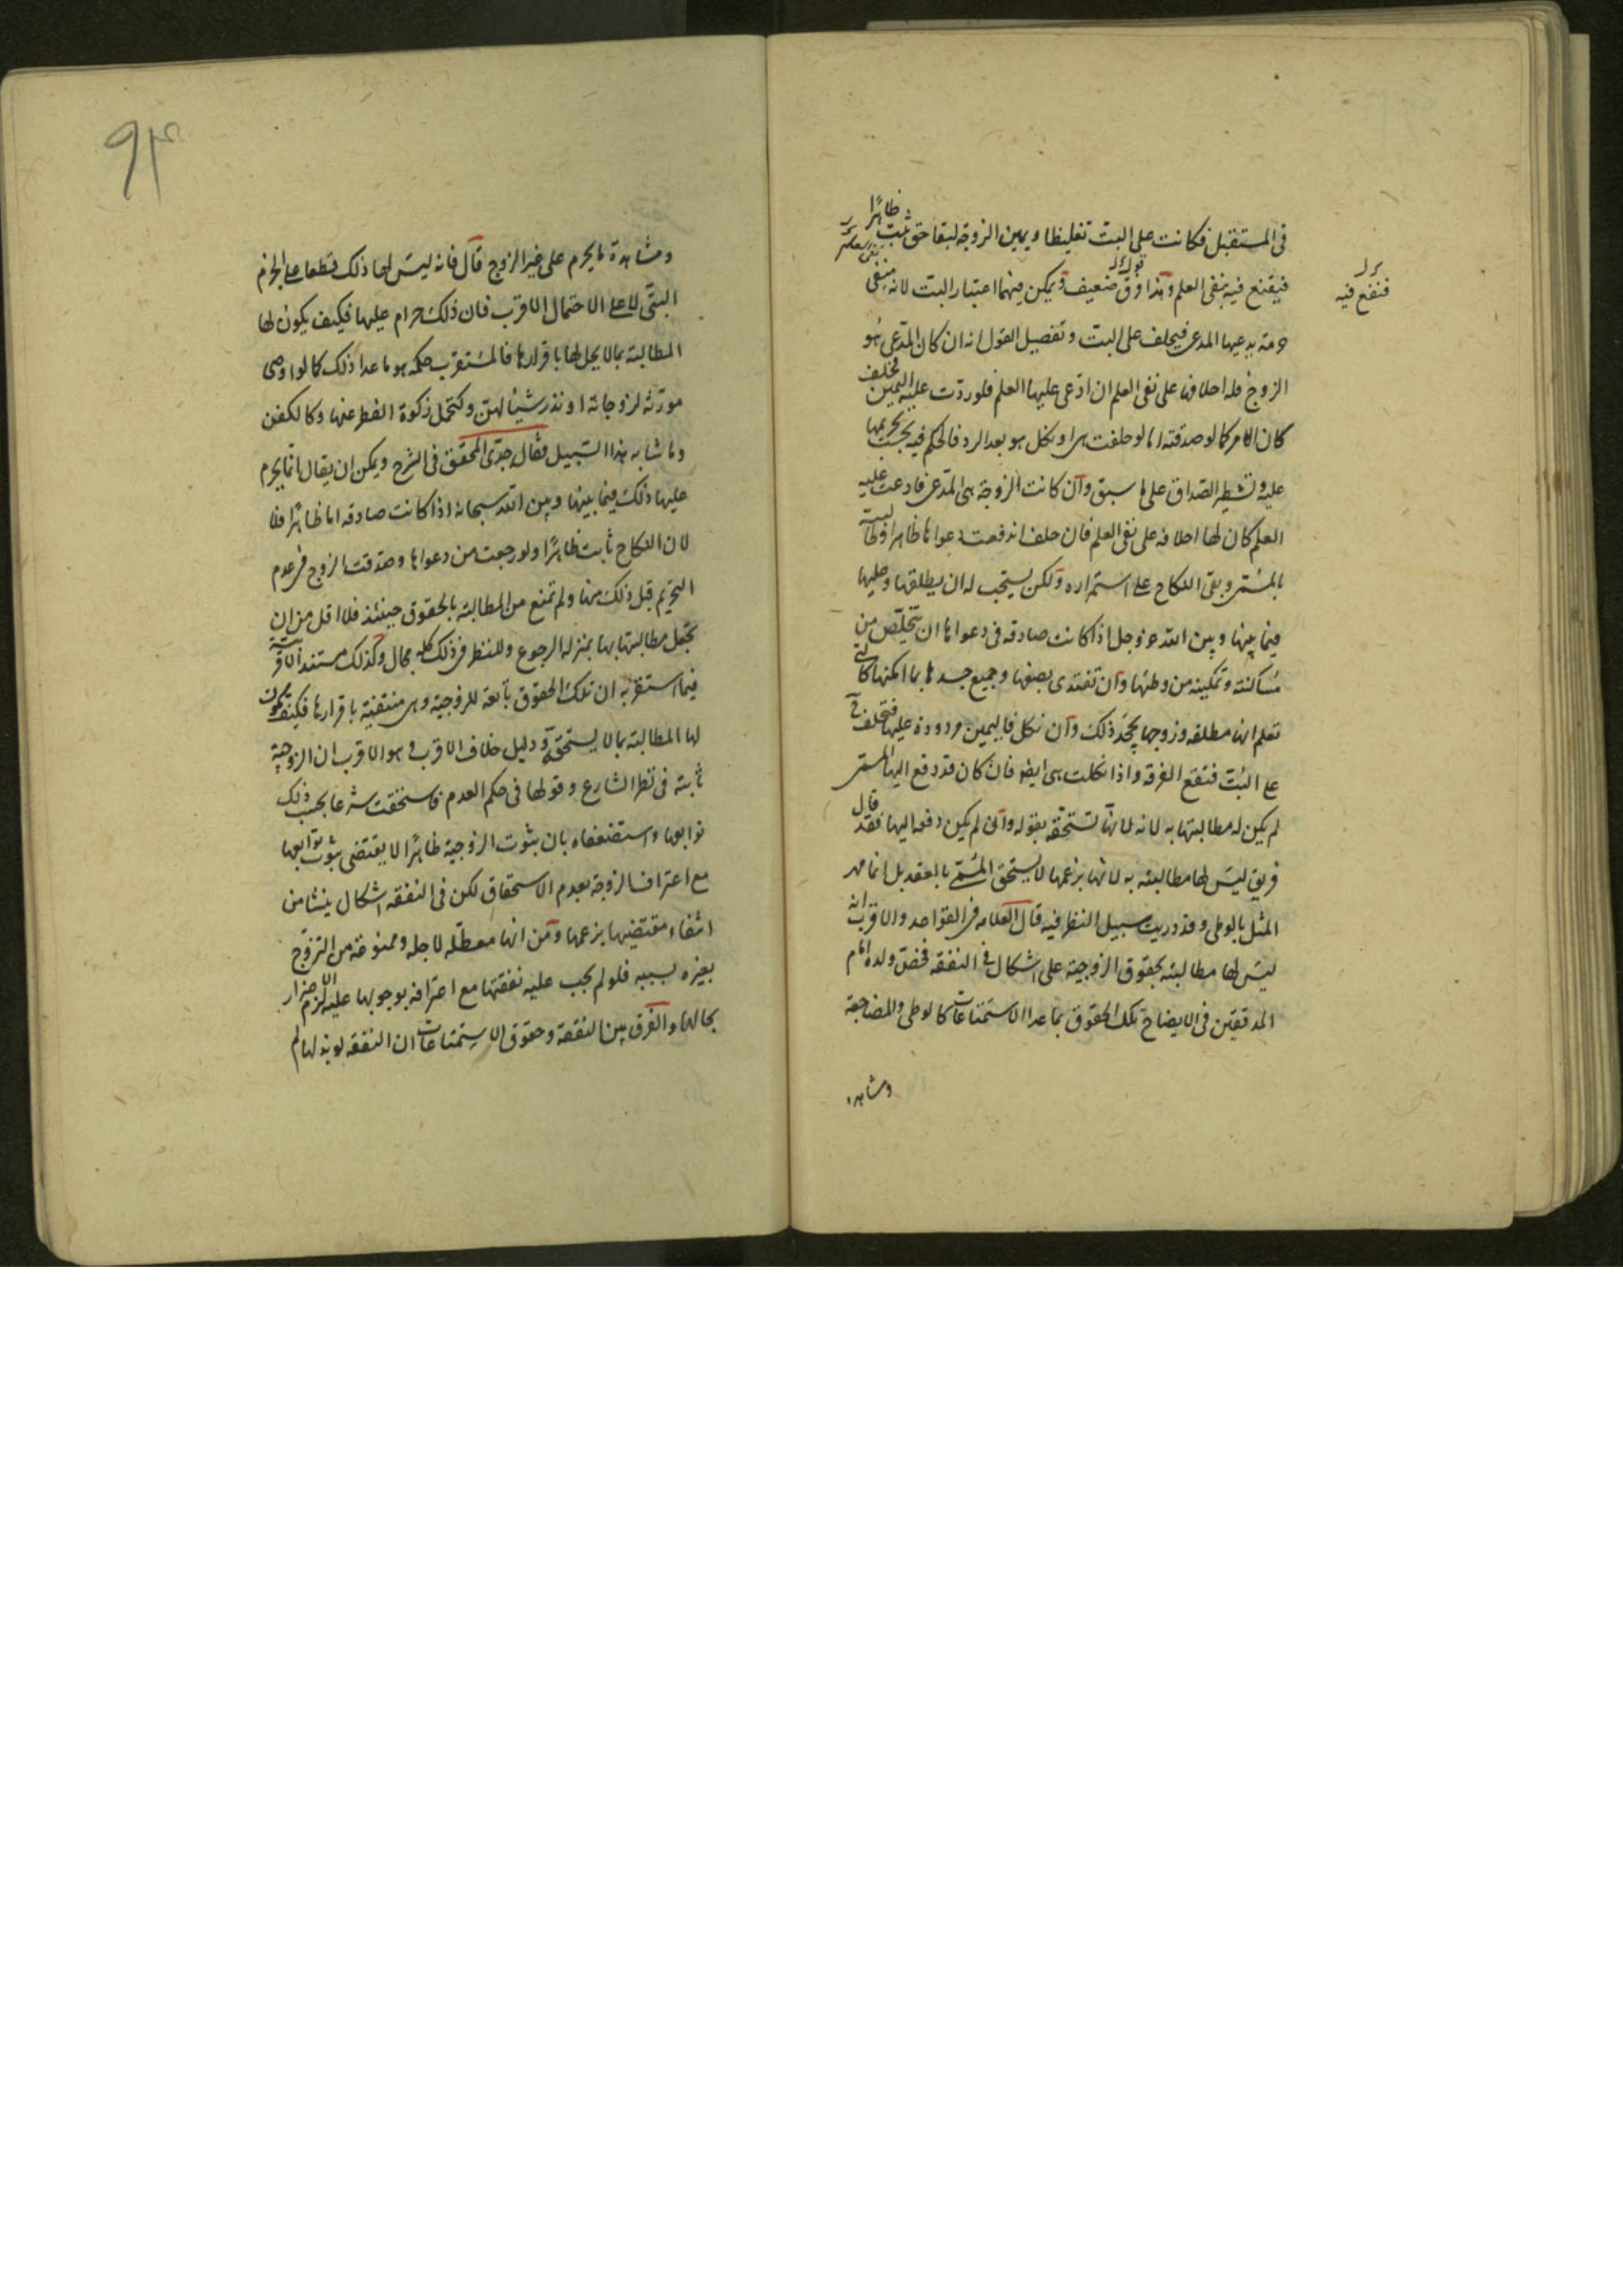 فى المستقبل فكانت على البت تغليظا ويمين الزوجة لبقاء حق ثبت ظاهرًا
فيقنع فيه بنفى العلم وهذا فرق ضعيف ويمكن فيهما اعتبار البت لانه ينفى
فتقنع فيه
حرمة يدعيها المدعى فيحلف على البت وتفصيل القول انه ان كان المدعى هو
الزوج فله احلافها على نفى العلم ان ادعى عليها العلم فلو ردت عليه اليمين فحلف
كان الامر كما لو صدقته اما لو حلفت هى او نكل هو بعد الرد فالحكم فيه بحسب تحريمها
عليه وتشطير الصداق على ما سبق وان كانت الزوجة هى المدعى فادعت عليه
العلم كان لها احلافه على نفى العلم فان حلف اندفعت دعواها ظاهرا
بالمسمى وبقى النكاح على استمراره ولكن يستحب له ان يطلقها وعليها
فيما بينها وبين الله عز وجل اذا كانت صادقه فى دعواها ان تتخلص من
مساكنته وتمكينه من وطئها وان تفتدى بضعها وجميع جسدها بما امكنها كالتى
تعلم انها مطلقه وزوجها يجحد ذلك وان نكل فاليمين مردودة عليها فتحلف
على البت فتقع الفرقه واذا نكلت هى ايضا فان كان قد دفع اليها المسمى
لم يكن له مطالبتها به لانه لها تستحقه بقوله وان لم يكن دفعه اليها فقد قال
فريق ليس لها مطالبته به لانها بزعمها لا يستحق المسمى بالعقد بل انما مهر
المثل بالوطى وقد دريت سبيل النظر فيه قال العلامه فى القواعد والاقرب انه
ليس لها مطالبته بحقوق الزوجية على اشكال فى النفقه فخص ولده امام
المدققين فى الايضاح تلك الحقوق بما عدا الاستمتاعات كالوطى والمضاجعة
ومشاهدة
٩٣
ومشاهدة ما يحرم على غير الزوج قال فانه ليس لها ذلك قطعا على الجزم
البتى لا على الاحتمال الاقرب فان ذلك حرام عليها فكيف يكون لها
المطالبة بما لا يحل لها باقرارها فالمستقرب حكمه هو ما عدا ذلك كما لو اوصى
مورثه لزوجاته او نذر شيئا لهن وكتحمل زكوة الفطر عنها وكالكفن
وما شابه هذا السبيل فقال جدى المحقق فى الشرح ويمكن ان يقال انما يحرم
عليها ذلك فيما بينها وبين الله سبحانه اذا كانت صادقه اما ظاهرًا فلا
لان النكاح ثابت ظاهرًا ولو رجعت من دعواها وصدقت الزوج فى عدم
التحريم قبل ذلك منها ولم تمنع من المطالبة بالحقوق حينئذ فلا اقل من ان
تجعل مطالبتها بها بمنزله الرجوع وللنظر فى ذلك كله مجال وكذلك مستند الاقربية
فيما استقربه ان تلك الحقوق تابعة للزوجية وهى منتفية باقرارها فكيف يكون
لها المطالبة بما لا يستحقه ودليل خلاف الاقرب وهو الاقرب ان الزوجية
ثابتة فى نظر الشارع وقولها فى حكم العدم فاستحقت شرعا بحسب ذلك
توابعها واستضعفاه بان ثبوت الزوجية ظاهرًا لا يقتضى ثبوت توابعها
مع اعتراف الزوجة بعدم الاستحقاق لكن فى النفقه اشكال ينشا من
انتفاء مقتضيها بزعمها ومن انها معطله لاجله وممنوعة من التزوج
بغيره بسببه فلو لم يجب عليه نفقتها مع اعترافه بوجوبها عليه لزم الاضرار
بحالها والفرق بين النفقة وحقوق الاستمتاعات ان النفقه لو بذلها لم